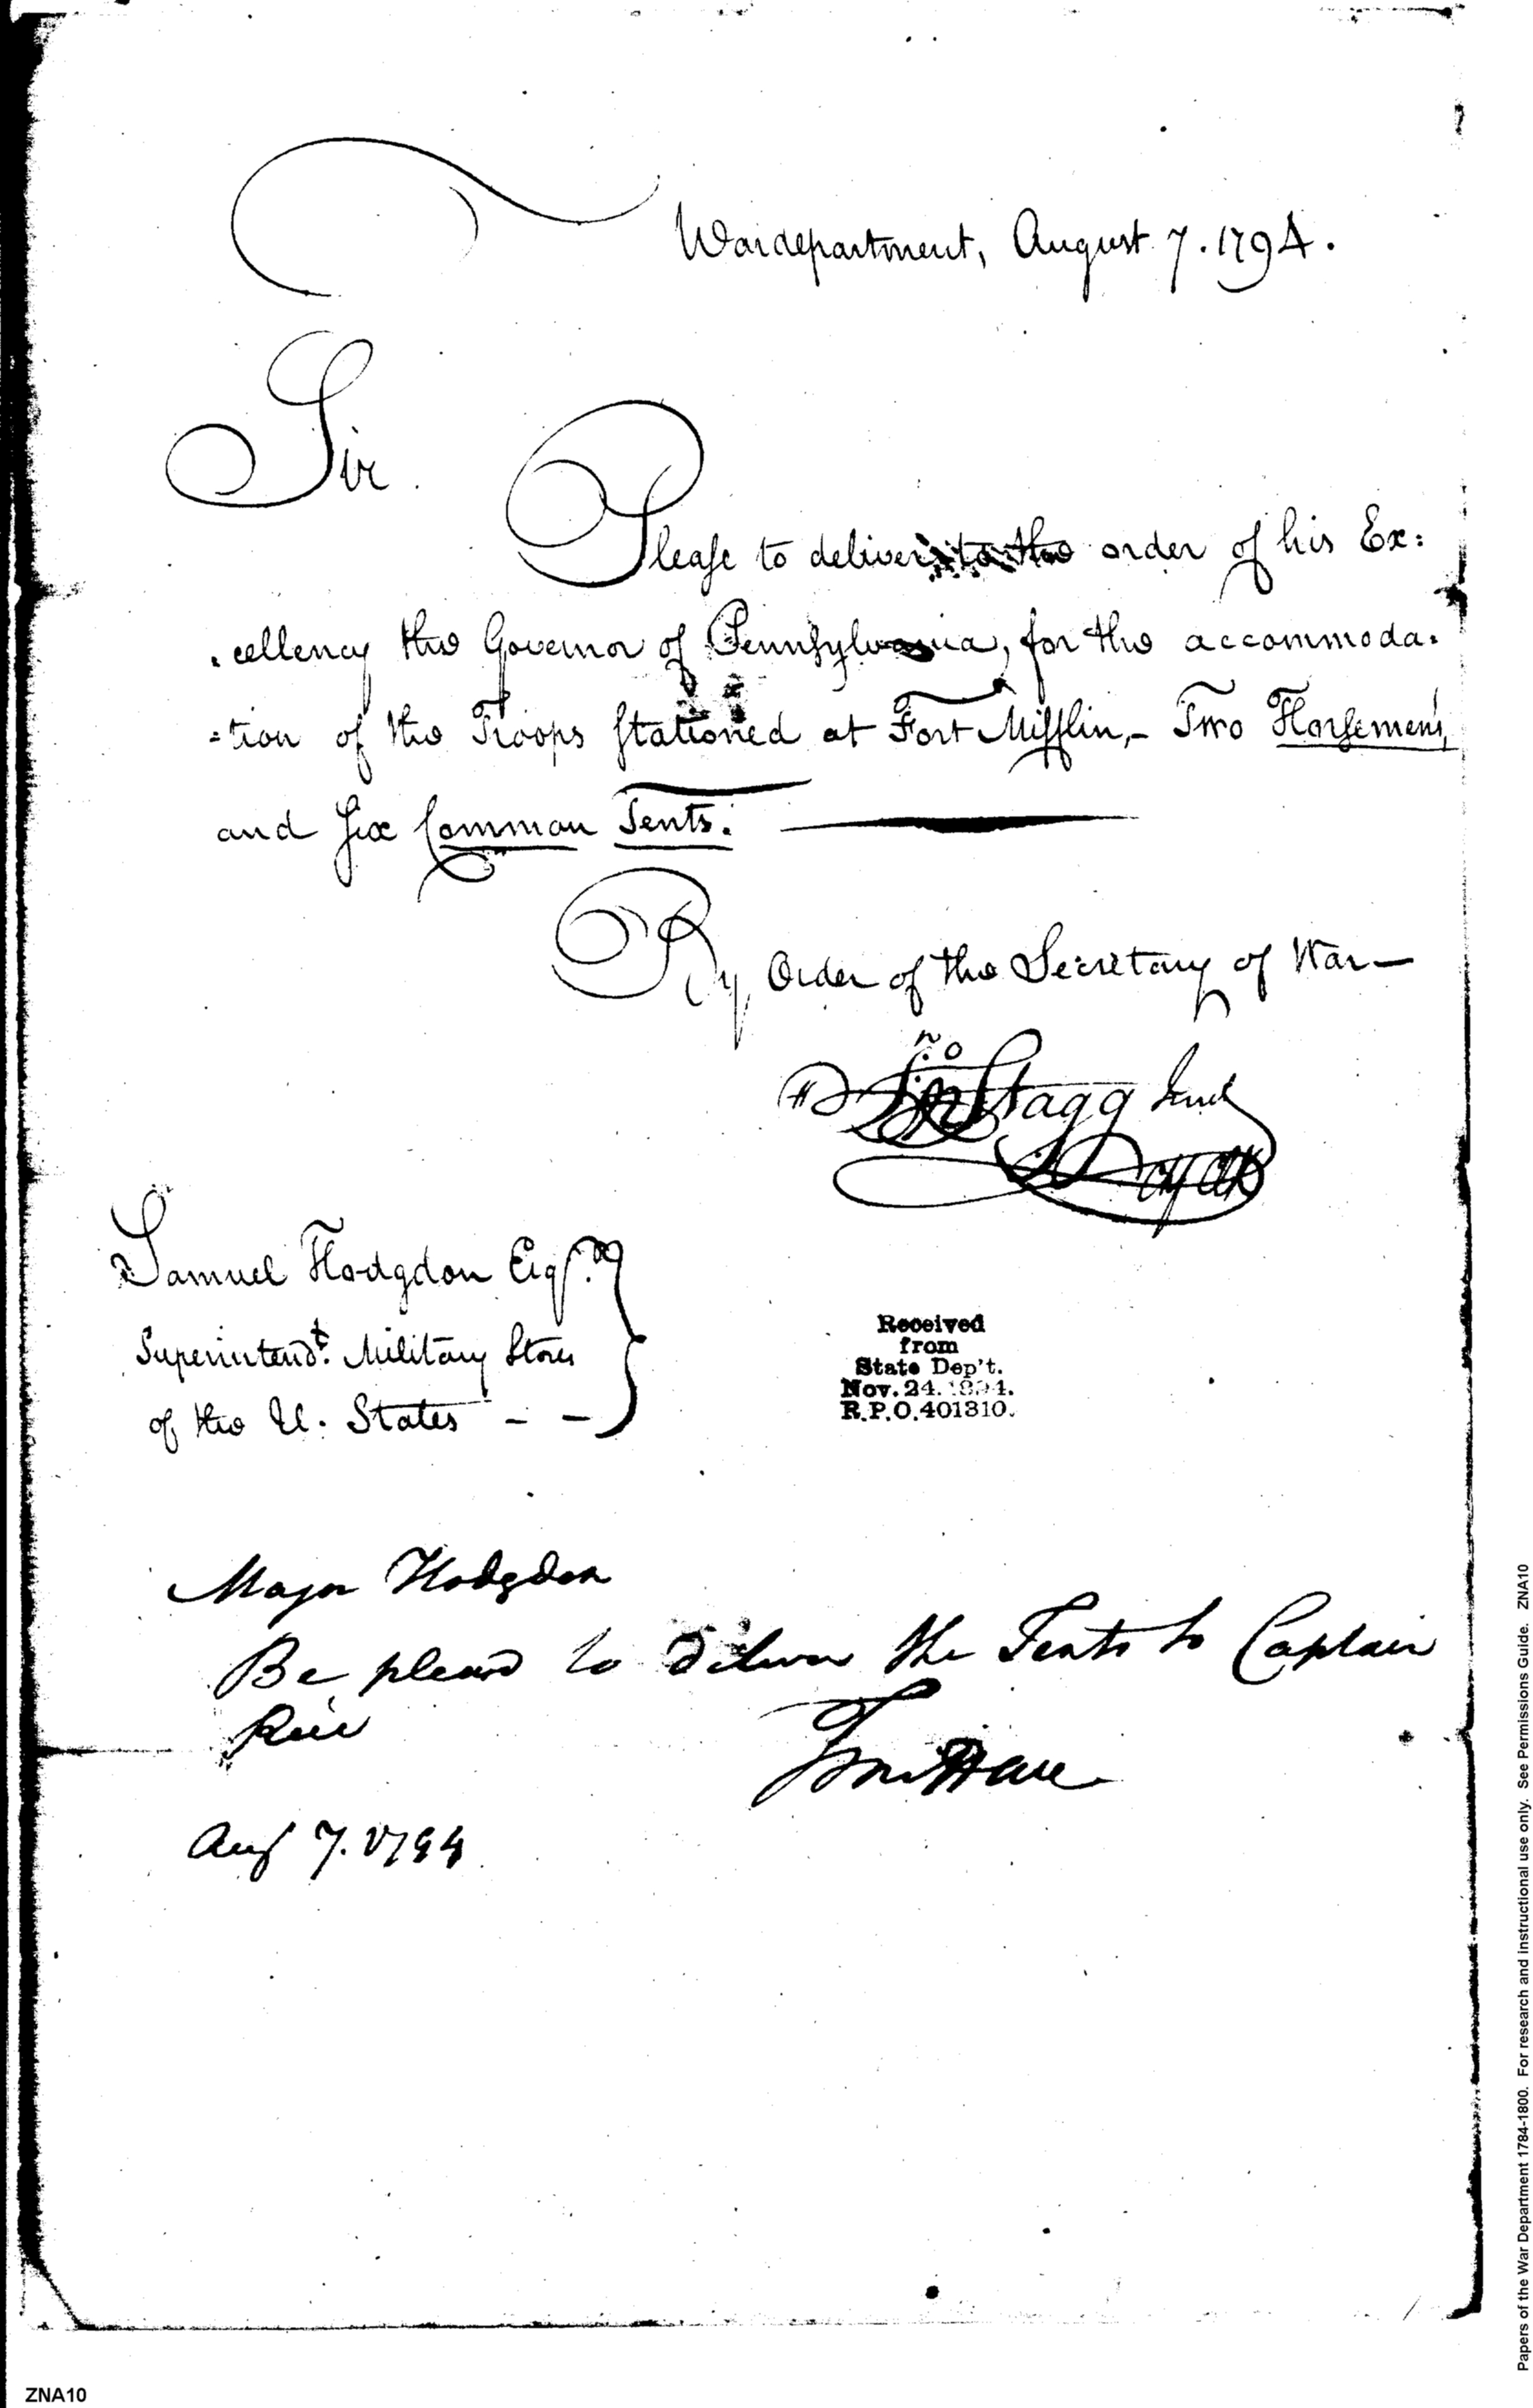 Wardepartment, August 7. 1794.
Sir.
Please to deliver to the order of his Ex:
:cellency the Governor of Pennsylvania, for the accommoda:
:tion of the Troops stationed at Fort Mifflin,- Two Horsemens,
and six Common Tents.
By Order of the Secretary of War—
Jno Stagg Junr
Samuel Hodgdon Esqr.
Superintendt. Military Stores
of the U. States - -
Received
from
State Dep't.
Nov. 24. 1894.
R.P.O. 401310.
Major Hodgdon
Be pleasd to Deliver the Tents to Captain
Rice
Aug 7. 1794
Papers of the War Department 1784-1800. For research and instructional use only. See Permissions Guide. ZNA10
ZNA10